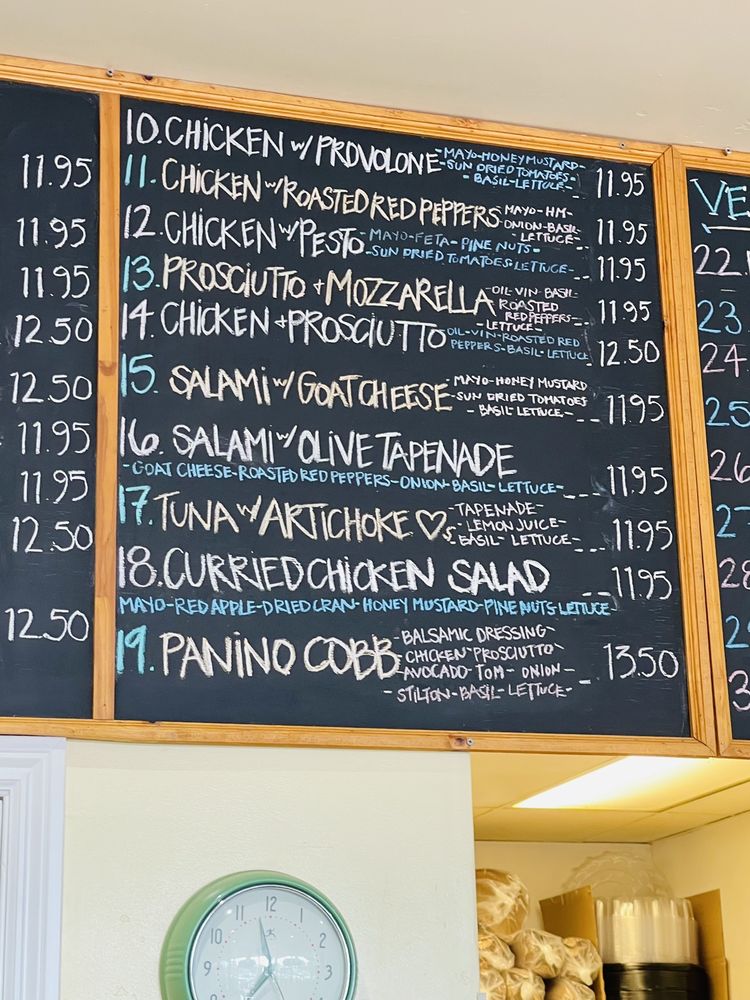 11.95
11.95
11.95
12.50
12.50
11.95
11.95
12.50
12.50
10. CHICKEN w/ PROVOLONE -MAYO-HONEY MUSTARD-
-SUN DRIED TOMATOES-
-BASIL-LETTUCE- 11.95
11. CHICKEN w/ ROASTED RED PEPPERS -MAYO-HM-
ONION-BASIL-
LETTUCE- 11.95
12. CHICKEN w/ PESTO -MAYO-FETA-PINE NUTS-
-SUN DRIED TOMATOES-LETTUCE- 11.95
13. PROSCIUTTO + MOZZARELLA -OIL-VIN-BASIL-
ROASTED
RED PEPPERS-
-LETTUCE- 11.95
14. CHICKEN + PROSCIUTTO OIL-VIN-ROASTED RED
PEPPERS-BASIL-LETTUCE 12.50
15. SALAMI w/ GOAT CHEESE -MAYO-HONEY MUSTARD
-SUN DRIED TOMATOES
-BASIL-LETTUCE- 11.95
16. SALAMI w/ OLIVE TAPENADE
-GOAT CHEESE-ROASTED RED PEPPERS-ONION-BASIL-LETTUCE- 11.95
17. TUNA w/ ARTICHOKE ♡s -TAPENADE-
-LEMON JUICE-
BASIL-LETTUCE- 11.95
18. CURRIED CHICKEN SALAD 11.95
MAYO-RED APPLE-DRIED CRAN-HONEY MUSTARD-PINE NUTS-LETTUCE-
19. PANINO COBB -BALSAMIC DRESSING-
CHICKEN-PROSCIUTTO-
-AVOCADO-TOM-ONION-
-STILTON-BASIL-LETTUCE- 13.50
VE
22.
23
24.
25
26
27
28
2
3
11 12 1
10 2
9 3